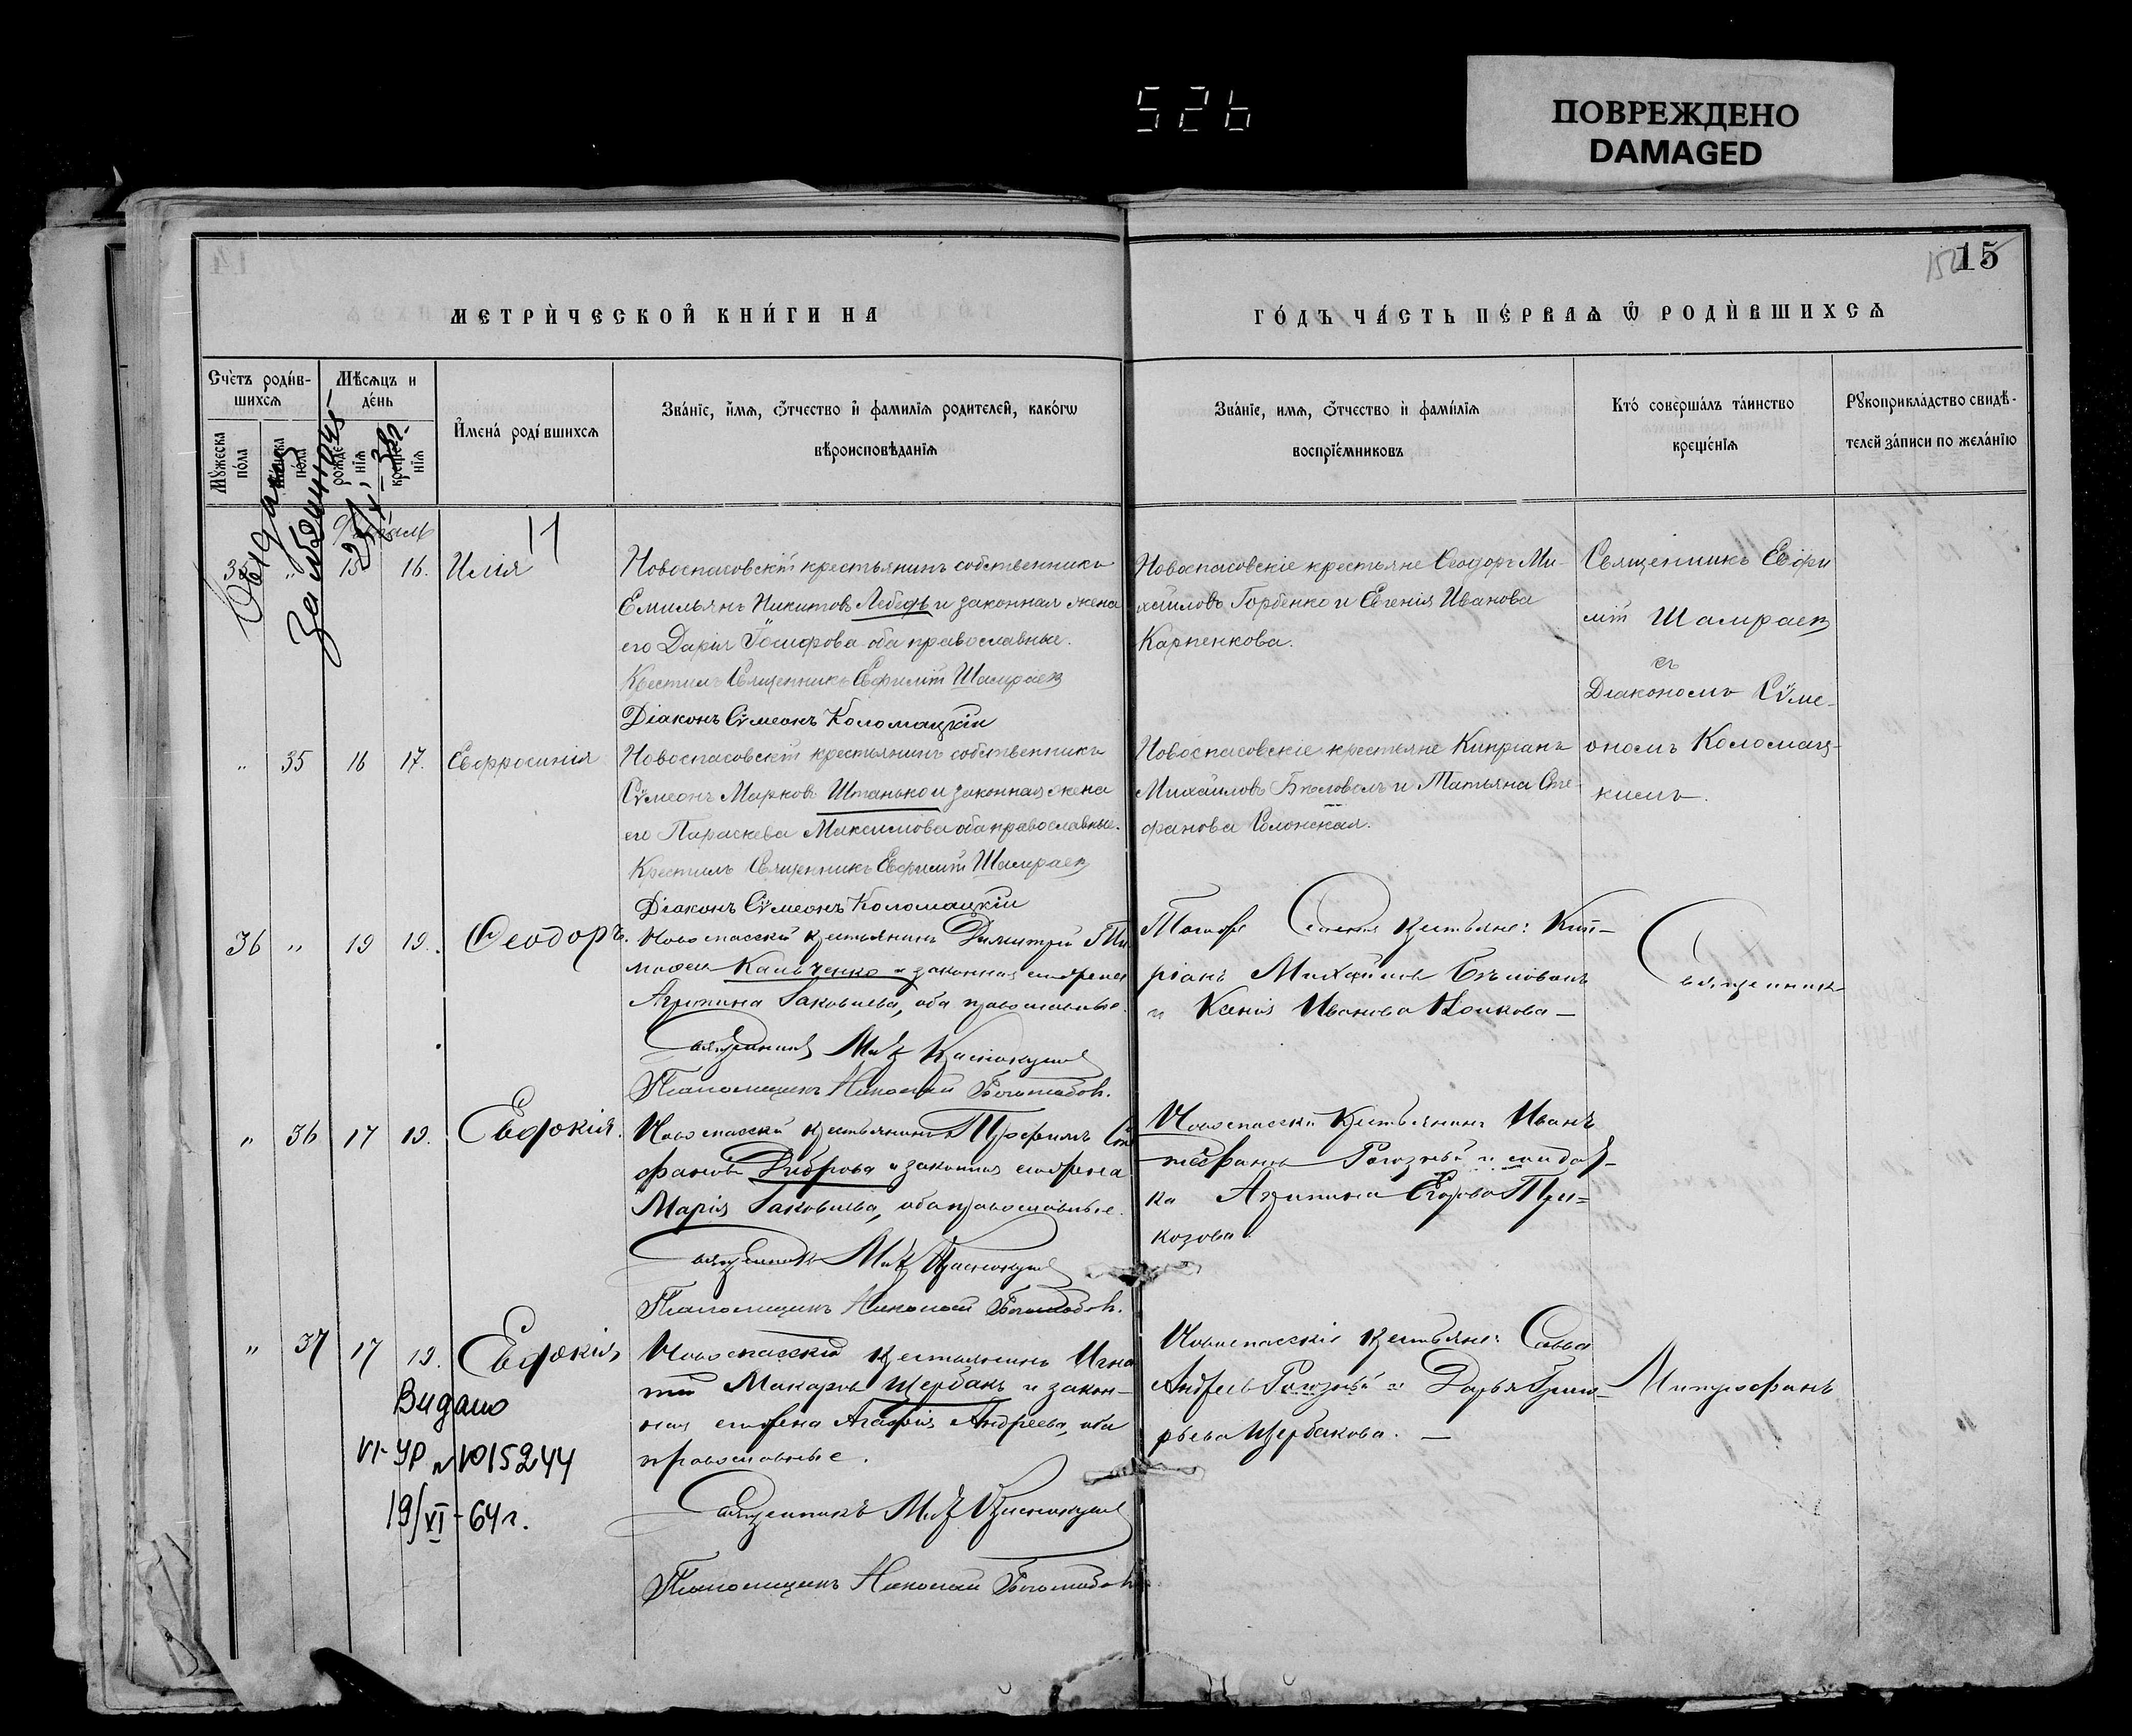 526
ПОВРЕЖДЕНО
DAMAGED
15
МЕТРИ́ЧЕСКОЙ КНИ́ГИ НА
ГО́ДЪ ЧА́СТЬ ПЕ́РВАѦ Ѡ РОДИ́ВШИХСѦ
Счетъ роди́в-
шихсѧ
Мѣсѧцъ и
де́нь
Мꙋ́жеска
по́ла
Же́нска
по́ла
рожде́-
нїѧ
креще́-
нїѧ
И҆мена̀ роди́вшихсѧ
Зва́нїе, и҆́мѧ, ѻ҆́тчество и҆ фами́лїѧ роди́телей, како́гѡ
вѣроисповѣ́данїѧ
Зва́нїе, и҆́мѧ, ѻ҆́тчество и҆ фами́лїѧ
воспрїе́мниковъ
Кто̀ соверша́лъ та́инство
креще́нїѧ
Рꙋкоприкла́дство свидѣ́-
телей за́писи по жела́нїю
16. Илія
Новоспасовскій крестьянинъ собственникъ
Емильянъ Никитовъ Лебедь и законная жена
его Дарія Іосифова оба православные.
Крестилъ Священникъ Евфимій Шамраев
Діаконъ Сѵмеонъ Коломацкій
Новоспасовскіе крестьяне Ѳеодоръ Ми-
хаиловъ Горбенко и Евгенія Иванова
Карпенкова.
Священникъ Евфи
мій Шамраев
съ
Діакономъ Сѵме-
ономъ Коломац-
кимъ.
„ 35 16 17. Евфросинія
Новоспасовскій крестьянинъ собственникъ
Сѵмеонъ Марковъ Штанько и законная жена
его Параскева Максимова оба православные.
Крестилъ Священникъ Евфимій Шамраев
Діаконъ Сѵмеонъ Коломацкій
Новоспасовскіе крестьяне Кипріанъ
Михаиловъ Бѣловолъ и Татьяна Сте-
фанова Солонская.
36 „ 19 19. Ѳеодоръ.
Новоспасскій крестьянинъ Димитрій Ти
моѳеев Кальченко и законная
Агрипина Іаковлева, оба православные.
Священникъ
Псаломщикъ Николай
крестьяне: Кип-
ріанъ Михайловъ Бѣловолъ
и Ксенія Иванова
Священникъ
„ 36 17 19. Евдокія.
Новоспасскій крестьянинъ Трофимъ Сте
фановъ Диброва и законная
Марія Іаковлева, оба православные.
Священникъ
Псаломщикъ Николай
Новоспасскій крестьянинъ Иванъ
Рогозный и
ка Агрипина Егорова При-
козова.
„ 37 17 19. Евдокія
Новоспасскій крестьянинъ Игна
тій Макаровъ Щербакъ и закон-
ная Агафія Андреева, оба
православные.
Священникъ
Псаломщикъ Николай
Новоспасскіе крестьяне: Савва
Андреевъ Рогозный и Дарья Григо-
рьева Щербакова. —
Митрофанъ
Видано
VI-УР № 1015244
19/VI-64г.